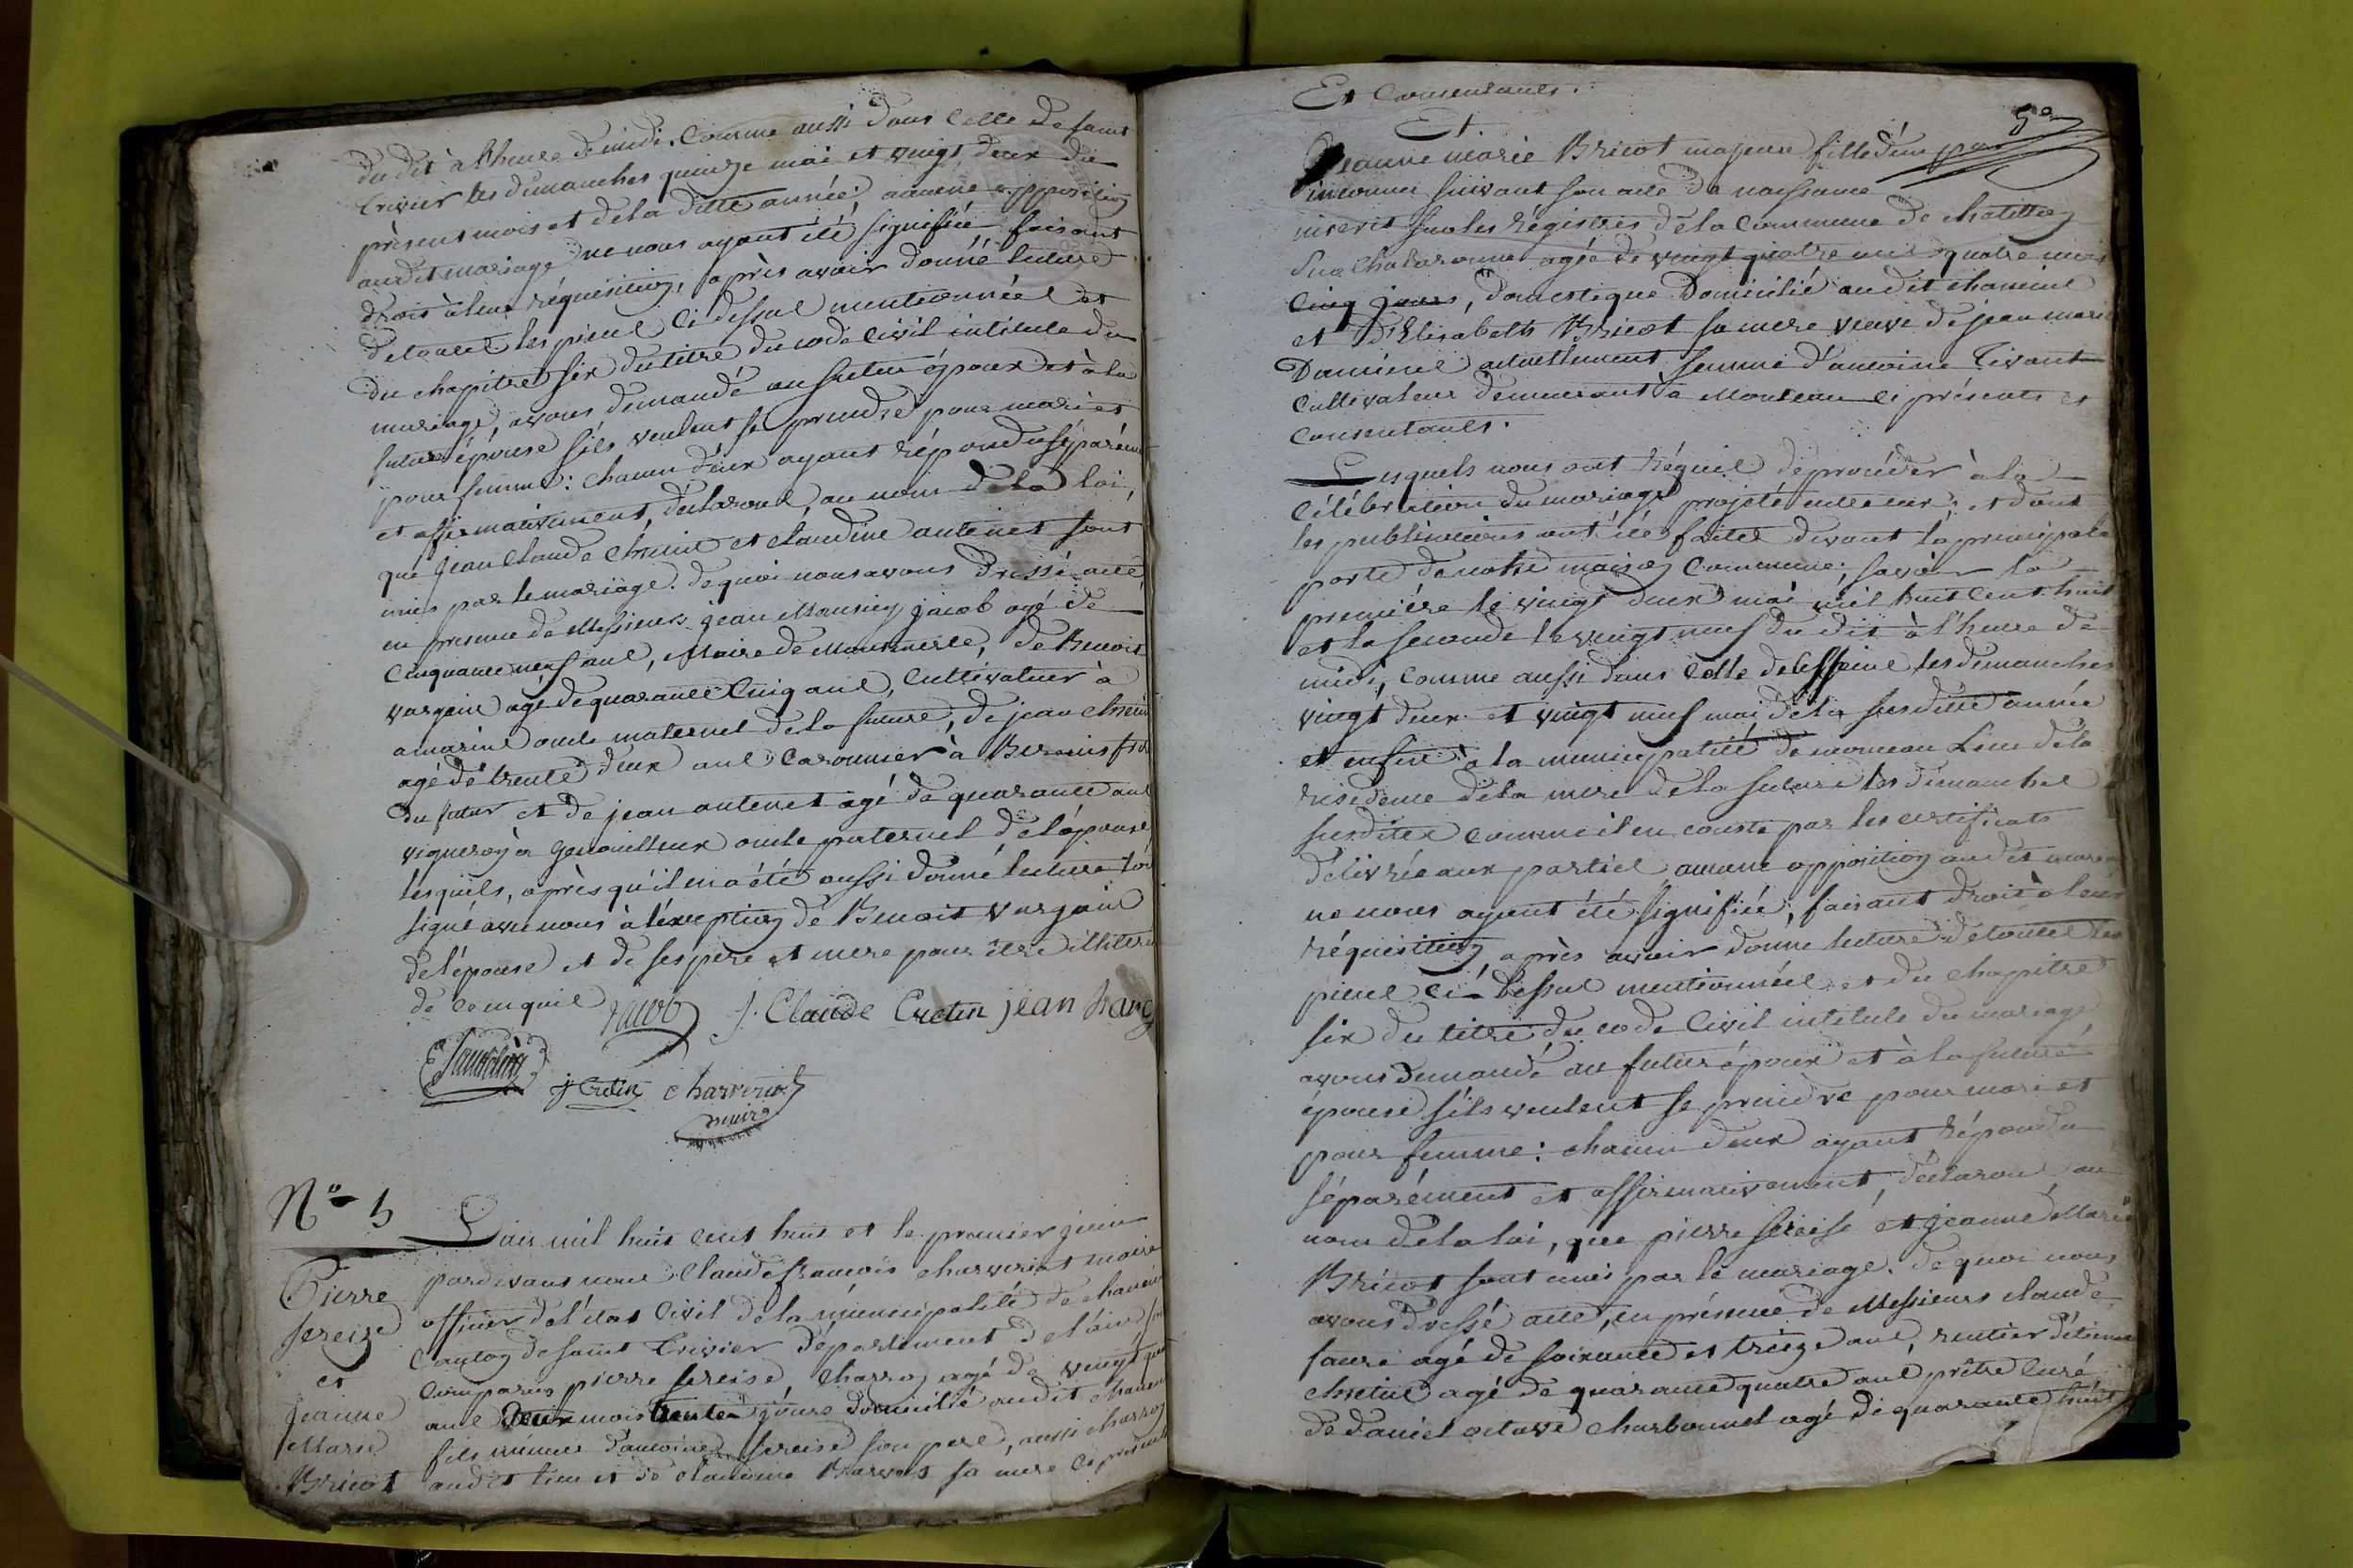 du dit à l'heure de midi. Comme aussi dans celle de saint
trivier les dimanches quinze mai et vingt deux du
présent mois et de la ditte année; aucune opposition
audit mariage ne nous ayant été signifiée, faisant
droit à leur réquisition, après avoir donné lecture
de toutes les pieces ci dessus mentionnées et
du chapitre six du titre du code civil intitulé du
mariage, avons demandé au futur époux et à la
future épouse s'ils veulent se prendre pour mari et
pour femme: chacun d'eux ayant répondu séparément
et affirmativement, declarons, au nom de la loi,
que jean Claude Cretin et claudine antenet sont
unis par le mariage. de quoi nous avons dressé acte
en presence de Messieurs jean jacob agé de
Cinquante neuf ans, Maire de Montmerle, de Benoit
vurgain agé de quarante Cinq ans, Cultivateur à
amarins oncle maternel de la future, de jean Cretin
agé de trente deux ans à
du futur et de jean antenet agé de quarante ans
vigneron à genouilleux oncle paternel de l'épouse
lesquels, après qu'il en a été aussi donné lecture l'ont
signé avec nous à l'exception de Benoit vurgain
de l'épouse et de ses père et mere pour être illiteré
de ce enquis
jacob J. Claude Cretin jean
j Cretin charverio
maire
N° 5
L'an mil huit cent huit et le premier juin
Pierre
par devant nous Claude françois charveriot maire
sereize
officier de l'état Civil de la municipalité de chaneins
et
Canton de saint trivier département de l'ain
Jeanne
Comparus pierre sereise charron agé de vingt
Marie
ans deux mois trente jours domicilié audit chaneins
Bricot
fils mineur d'antoine sereise son pere, aussi charron
audit lieu et de claudine sa mere ci présents
Et Consentants.
5e
Et.
Jeanne marie Bricot majeure fille d'un pere
inconnu suivant son acte de naissance
inscrit sur les régistres de la Commune de chatillon
sur chalaronne agée de vingt quatre ans quatre mois
Cinq jours, domestique Domicilié audit chaneins
et d'Elisabeth Bricot sa mere veuve de jean marie
Daminet actuellement femme d'antoine tivant
Cultivateur demeurant à Monteau ci présents et
Consentants.
Lesquels nous ont réquis de procéder à la
Célébration du mariage projeté entre eux; et dont
les publications ont été faites devant la principale
porte de notre maison Commune; savoir la
première le vingt deux mai mil huit cent huit
et la seconde le vingt neuf du dit à l'heure de
midi, comme aussi dans celle de les dimanches
vingt deux et vingt neuf mai de la susditte année
et enfin à la municipalité de Lieu de la
residence de la mere de la future les dimanches
susdites comme il en conste par les certificats
délivrés aux parties aucune opposition audit mariage
ne nous ayant été signifiée, faisant droit à leur
réquisition, après avoir donné lecture de toutes les
pieces ci-dessus mentionnées et du chapitre
six du titre du code Civil intitulé du mariage
avons demandé au futur époux et à la future
épouse s'ils veulent se prendre pour mari et
pour femme: chacun d'eux ayant répondu
séparément et affirmativement, déclarons, au
nom de la loi, que pierre sereise et jeanne Marie
Bricot sont unis par le mariage. de quoi nous
avons dressé acte, en présence de Messieurs claude
faure agé de soixante et treize ans, rentier d'étienne
chretin agé de quarante quatre ans prêtre curé
de daniel octave charbonnet agé de quarante huit